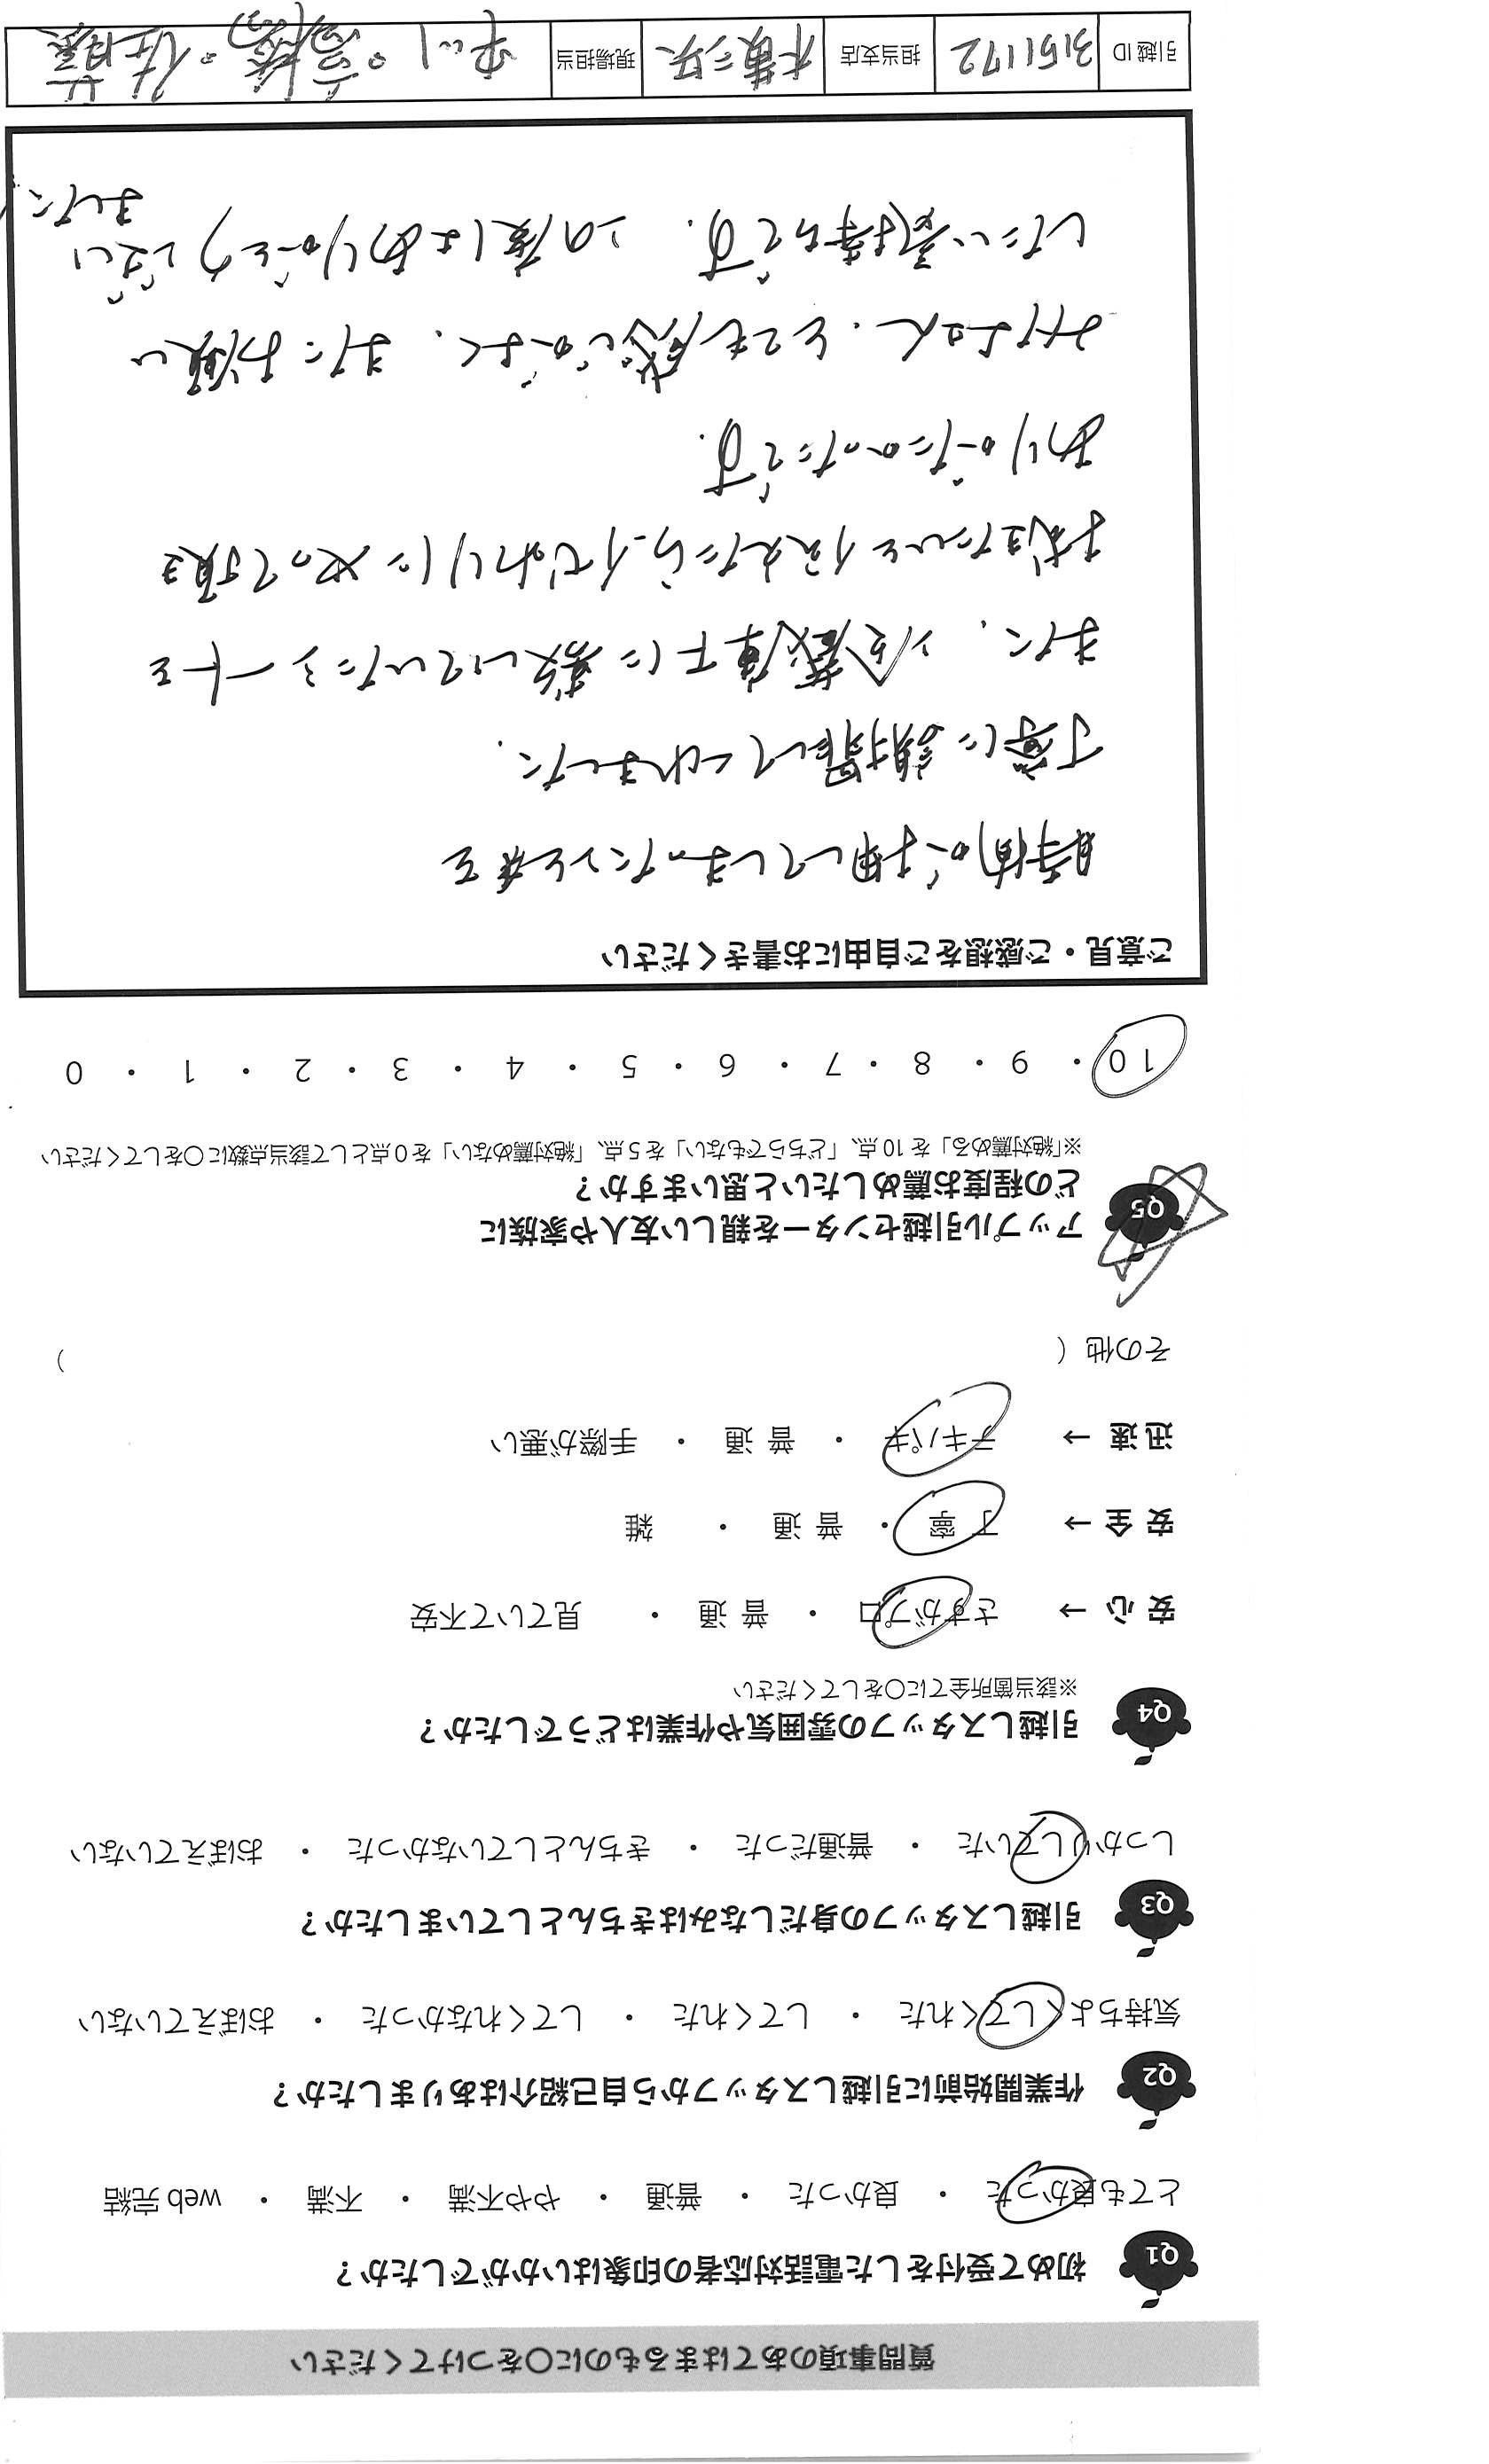 質問事項のあてはまるものに○をつけてください
Q1 初めて受付をした電話対応者の印象はいかがでしたか？
とても良かった ・ 良かった ・ 普通 ・ やや不満 ・ 不満 ・ web 完結
Q2 作業開始前に引越しスタッフから自己紹介はありましたか？
気持ちよくしてくれた ・ してくれた ・ してくれなかった ・ おぼえていない
Q3 引越しスタッフの身だしなみはきちんとしていましたか？
しっかりしていた ・ 普通だった ・ きちんとしていなかった ・ おぼえていない
Q4 引越しスタッフの雰囲気や作業はどうでしたか？
※該当箇所全てに○をしてください
安心 → さすがプロ ・ 普通 ・ 見ていて不安
安全 → 丁寧 ・ 普通 ・ 雑
迅速 → テキパキ ・ 普通 ・ 手際が悪い
その他（ ）
Q5 アップル引越センターを親しい友人や家族に
どの程度お薦めしたいと思いますか？
※「絶対薦める」を 10 点、「どちらでもない」を 5 点、「絶対薦めない」を 0 点として該当点数に○をしてください
10 ・ 9 ・ 8 ・ 7 ・ 6 ・ 5 ・ 4 ・ 3 ・ 2 ・ 1 ・ 0
ご意見・ご感想をご自由にお書きください
時間が押してしまったことを
丁寧に説明してくれました．
また、冷蔵庫下に敷いていたシートを
伝えたら、代わりにやって頂き
ありがたかったです．
みなさん、とても感じがよく、またお願い
したい気持ちです． この度はありがとうございました
引越 ID 3151172 担当支店 木黄 現場担当 中山。高橋。佐藤